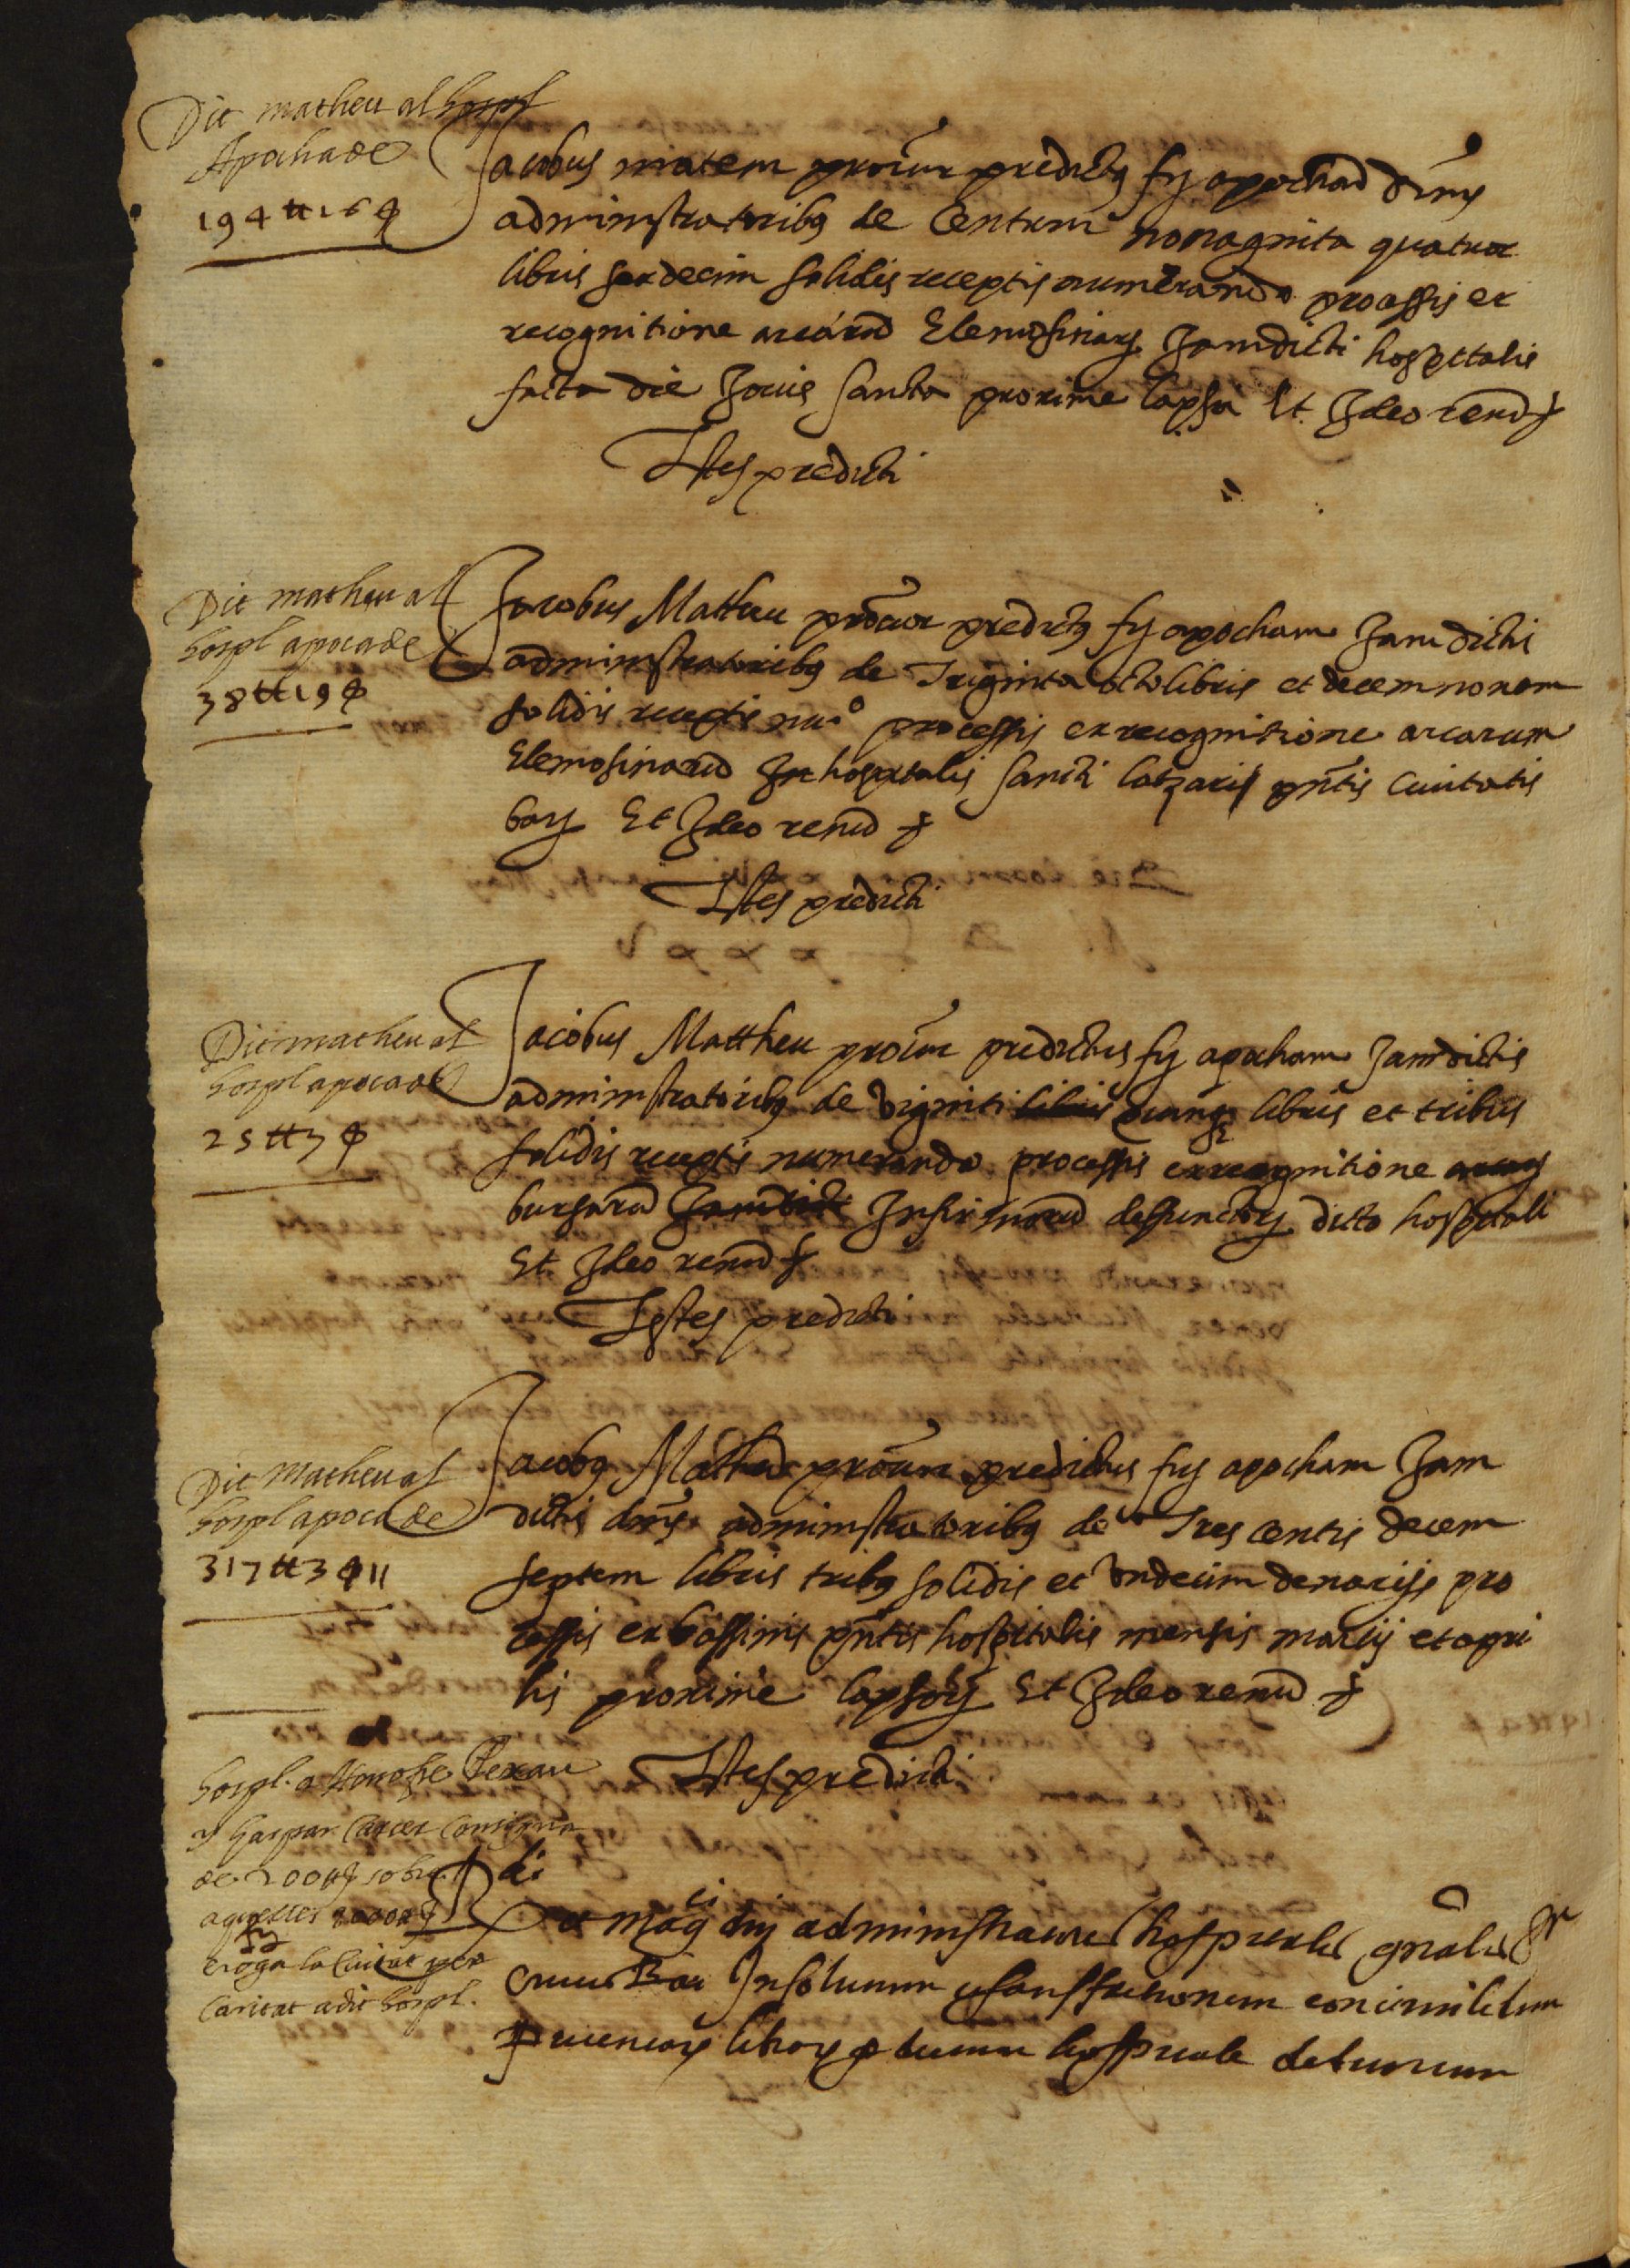 Dit matheu al hospl
Apocha de
194 ₶ 16 ꞩ
Jacobus matem procur predictus fy apocham dnis
administratoribus de Centum nonaginta quatuor
libris sexdecim solidis receptis numerando processis ex
recognitione arcarum Elemosinarum Jamdicti hospitalis
facta die Jovis Santa proxime lapsa Et Ideo renu &
Testes predicti
Dit matheu al
hospl apoca de
38 ₶ 19 ꞩ
Jacobus Mattheu procur predictus fy apocham Jam dictis
administratoribus de Triginta octo libris et decem novem
solidis receptis nu.º processis ex recognitione arcarum
Elemosinarum In hospitalis Sancti Latzari pntis Civitatis
bar Et Ideo renu &
Testes predicti
Dit matheu al
hospl apoca de
25 ₶ 3 ꞩ
Jacobus Mattheu procur predictus fy apocham Jamdictis
administratoribus de viginti libris quinque libris et tribus
solidis receptis numerando processis ex recognitione arcarum
bursarum Jamdicti Infirmorum defunctorum ditto hospitali
Et Ideo renu &
Testes predicti
Dit Matheu al
hospl apoca de
317 ₶ 3 ꞩ 11
Jacobus Matheu procur predictus fy apocham Jam
dictis dnis administratoribus de Tres centis decem
septem libris tribus solidis et undecim denarijs pro
cessis ex bassinis pntis hospitalis mensis martij et apri
lis proxime lapsorum Et Ideo renu &
Testes predicti
hospl. a Honofre Rexau
y Gaspar Carcer Consigna
de 200 ₶ sobra
aquelles
eroga la Ciutat per
Caritat a dit hospl.
di
magci dni administratores hospitalis gnalis
civis Bar In solutum
libras hospitale